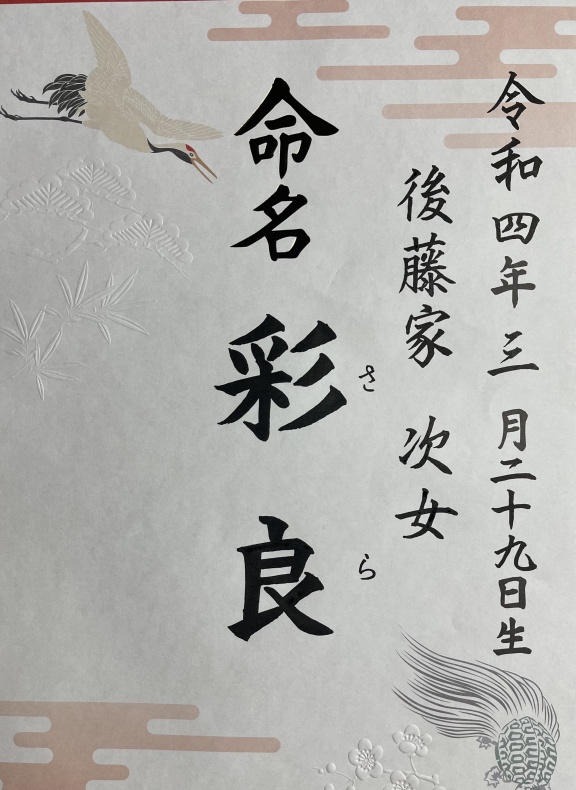 令和四年三月二十九日生
後藤家 次女
命名 彩良
さら